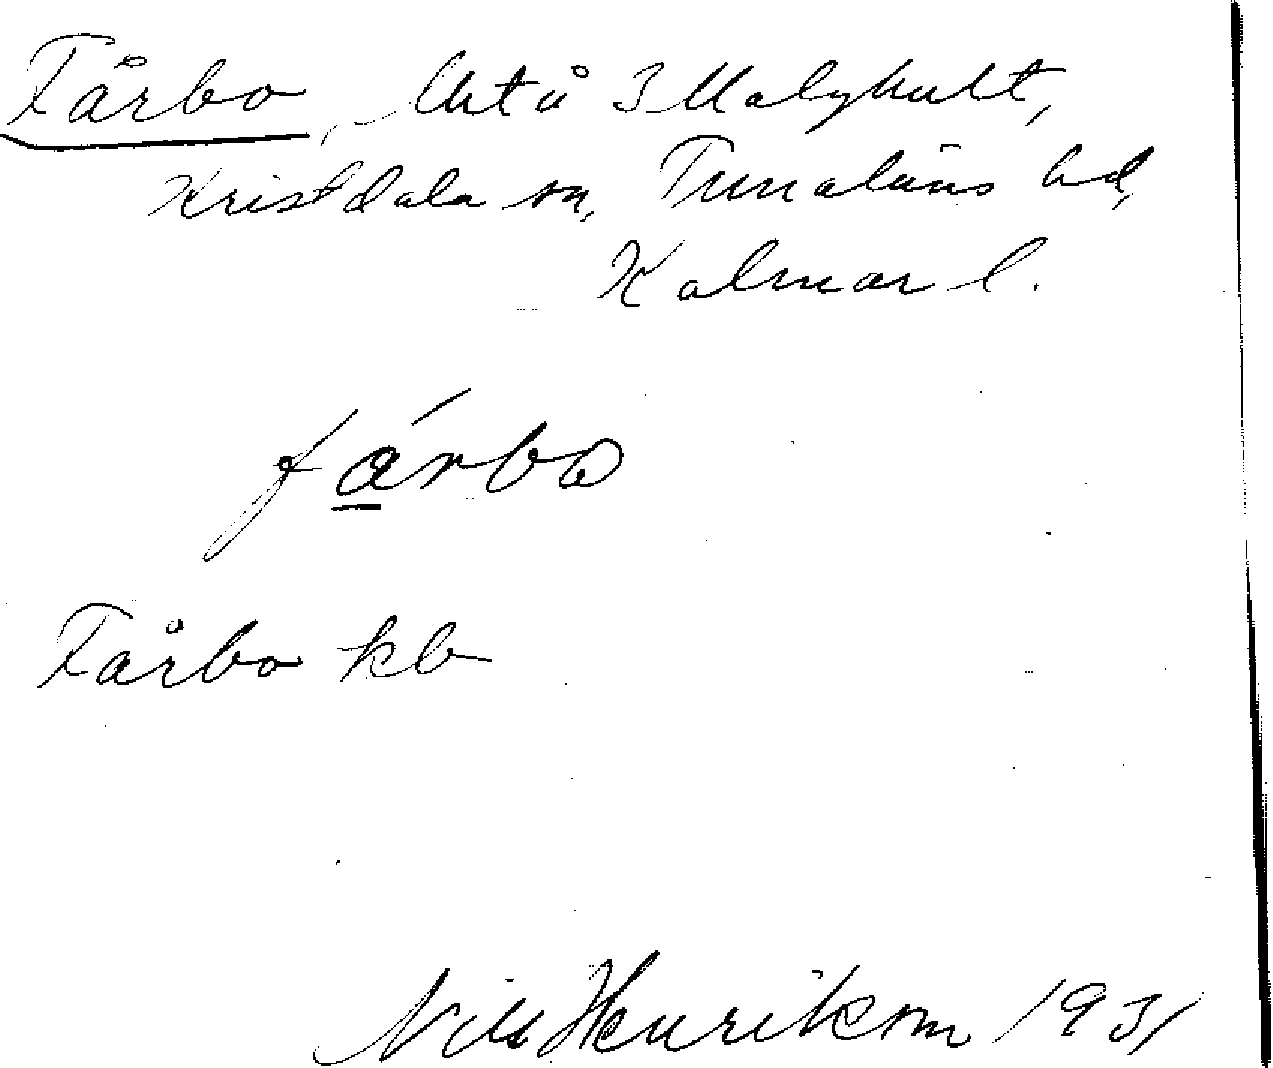 Fårbo, Urt å 3 Malghult,
Kristdala sn, Tunaläns hd,
Kalmar l.
fárbo
Fårbo kb
Nils Henrikson 1931